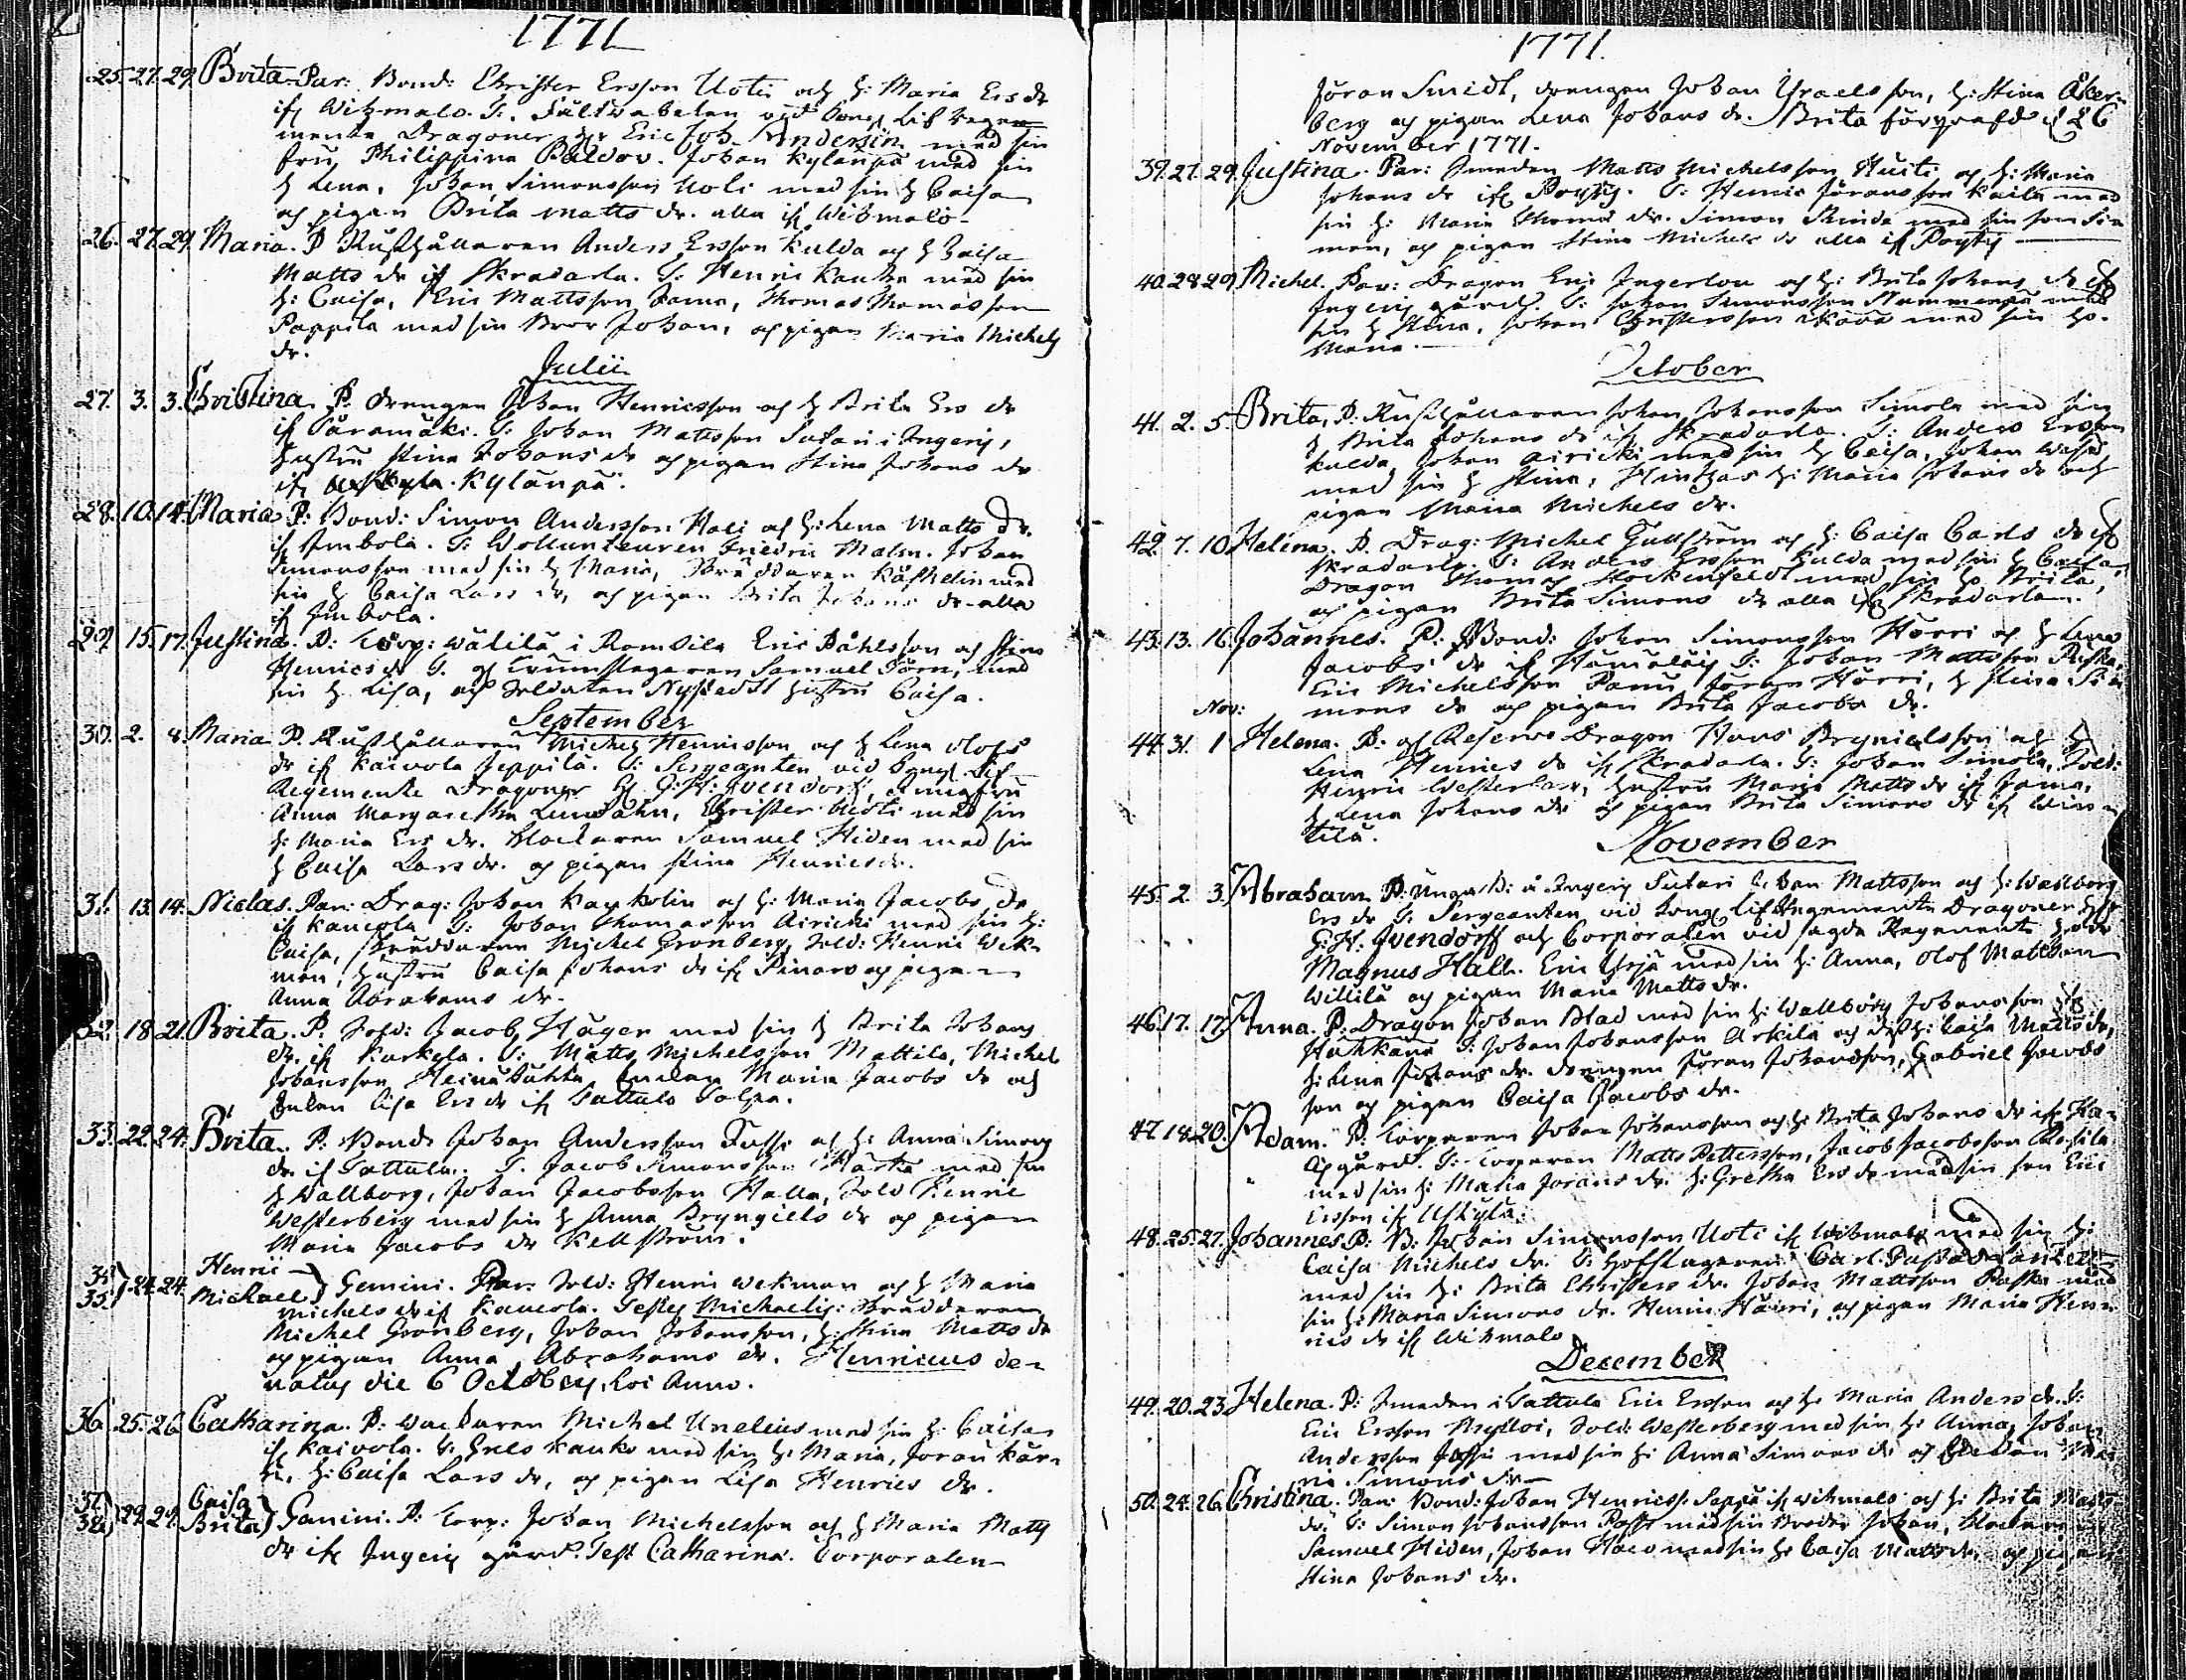 1771
25. 27. 29. Brita. Par: Bond: Christer Ersson Uoti och h: Maria Ers dr
if Witzmalo. T: Fältwäbelen vid Kongl Lif Rege
mente Dragoner Eric Joh. Andersin med sin
fru Philippina Baldov. Johan Kylänpä med sin
h Lena, Johan Simonsson Uoti med sin h Caisa
och pigan Brita Matts dr. alla if Witzmalo
26. 27. 29. Maria. P Rusthållaren Anders Ersson Kulda och h Caisa
Matts dr if Skradarla. T: Henric Kauka med sin
h: Caisa, Eric Mattsson Jama, Thomas Thomasson
Pappila med sin Bror Johan, och pigan Maria Michels
dr.
Julii
27. 3. 3. Christina. P. drengen Johan Henricsson och h Brita Ers dr
if Päramäki. T: Johan Mattsson Sutari i Ingeris,
hustru Stina Johans dr och pigan Stina Johans dr
if Kylänpä.
28. 10. 14. Maria. P: Bond: Simon Andersson Hali och h: Lena Matts dr.
if Imbola. T: Wollunteuren Friedric Malm. Johan
Simonsson med sin h Maria, Skräddaren Käfhelin med
sin h Caisa Lars dr, och pigan Brita Johans dr alla
if Imbola.
29. 15. 17. Justina. P: Corp: Wälilä i Romsila Eric Påhlsson och Stina
Henrics dr T. och Trumslagaren Samuel Törn, med
sin h Lisa, och Soldaten Nystedt hustru Caisa.
September
30. 2. 8. Maria P. Rusthållaren Michel Henricsson och h Lena Olofs
dr if Kaivola Seppilä. T: Sergeanten vid Kongl Lif
Regemente Dragoner G: H: Jvendorff, Jungfru
Anna Margaretha Lundahn, Christer Uoti med sin
h: Maria Ers dr. Klockaren Samuel Hiden med sin
h Caisa Lars dr. och pigan Stina Henrics dr.
31. 13. 14. Niclas. Par: Drag: Johan Kaukolin och h: Maria Jacobs dr
if Kaucola T: Johan Thomasson Airicki med sin h:
Caisa, Skräddaren Michel Gronberg, Sold: Henric Wek-
man, hustru Caisa Johans dr if Pinars och pigan
Anna Abrahams dr.
32. 18. 21. Brita. P. Sold: Jacob Häger med sin h Brita Johans
dr. if Karkola. T: Matts Michelsson Mattila, Michel
Johansson Heinätuhka Enkan Maria Jacobs dr och
Enkan Lisa Ers dr if Tattula Tolpa.
33. 22. 24. Brita. P. Bond: Johan Andersson Jussi och h: Anna Simons
dr. if Tattula. T. Jacob Simonsson Märta med sin
h Wallborg, Johan Jacobsson Halla, Sold Henric
Westerberg med sin h Anna Bryngiels dr och pigan
Maria Jacobs dr Kellström.
34. 35. 24. 24. Henric Michael } Gemini. Par: Sold: Henric Wekman och h Maria
Michels dr if Kaucola. Testes Michaelis: Skräddaren
Michel Gronberg, Johan Johansson, h: Stina Matts dr
och pigan Anna Abrahams dr. Henricus de-
natus die 6 Octobris, hoi Anno.
36. 25. 26. Catharina. P: Wacktaren Michel Unelius med sin h: Caisa
if Kaivola. T: Gres Kauko med sin h: Maria, Joran Kär-
ki, h: Caisa Lars dr, och pigan Lisa Henrics dr.
37. 38. 29. 29. Caisa Brita } Gemini. P: Torp: Johan Michelsson och h Maria Matts
dr if Ingeris gård. Test Catharina. Corporalen
1771.
Jöran Smidt, drengen Johan Ysraelsson, h: Stina Åker-
berg och pigan Lena Johans dr. Brita förgrafd d 26
November 1771.
39. 27. 29. Justina. Par: Smeden Matts Michelsson Huiti och h: Maria
Johans dr if Poytis. T: Henric Jöransson Kaila med
sin h: Maria Thomas dr. Simon Skinda med sin son Si-
mon, och pigan Stina Michels dr alla if Poytis
40. 28. 29. Michel. Par: Dragon Eric Ingerlou och h: Brita Johans dr if
Ingeris gård. T: Johan Simonsson Nummenpä med
sin h Stina, Johan Christersson Kova med sin h
Maria.
October
41. 2. 5. Brita. P: Rusthållaren Johan Johansson Simola med sin
h Brita Johans dr if Skradarla. T: Anders Ersson
Kulda, Johan Airicki med sin h Caisa, Johan
med sin h Stina, h: Maria Johans dr och
pigan Maria Michels dr.
42. 7. 10. Helena. P. Drag: Michel Gullström och h: Caisa Carls dr if
Skradarla. T: Anders Ersson Kulda med sin h Caisa,
Dragon Thomas Stockenfeldt med sin h Brita,
och pigan Brita Simons dr alla if Skradarla.
43. 13. 16. Johannes. P: Bond: Johan Simonsson Hörri och h Lena
Jacobs dr if T: Johan Mattsson Puska,
Eric Michelsson Panu, Jöran Hörri, h Stina Si-
mons dr och pigan Brita Jacobs dr.
Nov:
44. 31. 1 Helena. P: och Reserve Dragon Hans Brynielsson och h
Lena Henrics dr if Skradarla. T: Johan Simola, Sold:
Henric Westerberg, hustru Maria Matts dr if Jama,
h Lena Johans dr och pigan Brita Simons dr if Win-
tilä.
November
45. 2. 3. Abraham. P: Unga B: å Ingeris Sutari Johan Mattsson och h: Wallborg
Ers dr T: Sergeanten vid Kongl Lif Regemente Dragoner
G: H: Jvendorff och Corporalen vid sagde Regemente
Magnus Hall. Eric Yrjä med sin h: Anna, Olof Mattsson
Willilä och pigan Maria Matts dr.
46. 17. 17. Anna. P: Dragon Johan Blad med sin h: Wallborg Johansson if
Huhkana T: Johan Johansson Arkila och dess h: Caisa Matts dr,
h: Lena Johans dr. drengen Jöran Johansson, Gabriel Jacobs
son och pigan Caisa Jacobs dr.
47. 18. 20. Adam. P: Torparen Johan Johansson och h: Brita Johans dr if Ka-
gård. T: Torparen Matts Pettersson, Jacob Jacobsson
med sin h: Maria Jorans dr. h: Gretha Ers dr med sin son Eric
Ersson if Uskyla.
48. 25. 27. Johannes. P: B: Johan Simonsson Uoti if Witzmalo med sin h:
Caisa Michels dr. T: Hofslagaren Carl
med sin h: Brita Christers dr. Johan Mattsson Paska med
sin h: Maria Simons dr. Henric Häiri, och pigan Maria Hen-
rics dr if Witzmalo
December
49. 20. 23. Helena. P: Smeden i Tattula Eric Ersson och h: Maria Anders dr. T:
Eric Ersson Sold: Westerberg med sin h: Anna, Johan
Andersson Jussi med sin h: Anna Simons dr och Ma-
ria Simons dr
50. 24. 26. Christina. Par: Bond: Johan Henricss. Seppä if Witzmalo och h: Brita Matts
dr. T: Simon Johansson Passi med sin Broder Johan, Klockaren
Samuel Hiden, Johan med sin h: Caisa Matts dr, och pigan
Stina Johans dr.